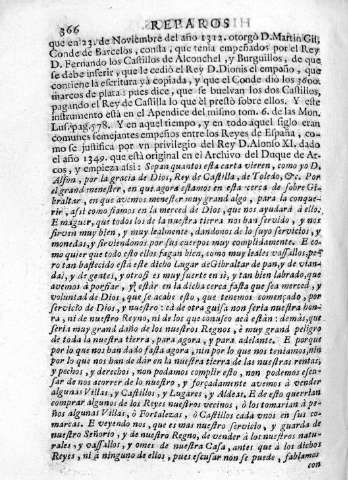 366 REPAROS
que en 23. de Noviembre del año 1312. otorgó D. Martin Gil,
Conde de Barcelos, consta, que tenia empeñados por el Rey
D. Fernando los Castillos de Alconchel, y Burguillos, de que
se debe inferir, que le cedió el Rey D. Dionis el empeño, que
contiene la escritura yà copiada, y que el Conde dió los 3600.
marcos de plata: pues dice, que se buelvan los dos Castillos,
pagando el Rey de Castilla lo que èl prestò sobre ellos. Y este
instrumento està en el Apendice del mismo tom. 6. de las Mon.
Lus. pag. 578. Y en aquel tiempo, y en todo aquel siglo eran
comunes semejantes empeños entre los Reyes de España, como
se justifica por vn privilegio del Rey D. Alonso XI. dado
el año 1349. que està original en el Archivo del Duque de Arcos,
y empieza asi: Sepan quantos esta carta vieren, como yo D.
Alfon, por la gracia de Dios, Rey de Castilla, de Toledo, &c. Por
el grand menester, en que agora estamos en esta cerca de sobre Gibraltar,
en que avemos menester muy grand algo, para la conquerir,
asi como fiamos en la merced de Dios, que nos ayudarà à ello:
E maguer, que todos los de la nuestra tierra nos han servido, y nos
sirven muy bien, y muy lealmente, dandonos de lo suyo servicios, y
monedas, y sirviendonos por sus cuerpos muy complidamente. E como
quier que todo esto ellos fagan bien, como muy leales vassallos, pero
tan bastecido està este dicho Lugar de Gibraltar de pan, y de viandas,
y de gentes, y otrosi es muy fuerte en si, y tan bien labrado, que
avemos à porfiar, y à estàr en la dicha cerca fasta que sea merced, y
voluntad de Dios, que se acabe esto, que tenemos començado, por
servicio de Dios, y nuestro: cà de otra guisa non seria nuestra honra,
ni de nuestro Reyno, ni de los que connusco acà están: demàs, que
seria muy grand daño de los nuestros Regnos, è muy grand peligro
de toda la nuestra tierra, para agora, y para adelante. E porque
por lo que nos han dado fasta agora, nin por lo que nos teniamos, nin
por lo que nos han de dàr en la nuestra tierra de las nuestras rentas,
y pechos, y derechos, non podamos complir esto, non podemos escusar
de nos acorrer de lo nuestro, y forçadamente avemos à vender
algunas Villas, y Castillos, y Lugares, y Aldeas. E de esto querian
comprar algunos de los Reyes nuestros vecinos, ò los tomarian à peños
algunas Villas, ò Fortalezas, ò Castillos cada vnos en sus comarcas.
E veyendo nos, que es mas nuestro servicio, y guarda de
nuestro Señorio, y de nuestro Regno, de vender à los nuestros naturales,
y vassallos, y omes de nuestra Casa, antes que à los dichos
Reyes, ni à ninguno de ellos, pues escusar non se puede, fablamos
con